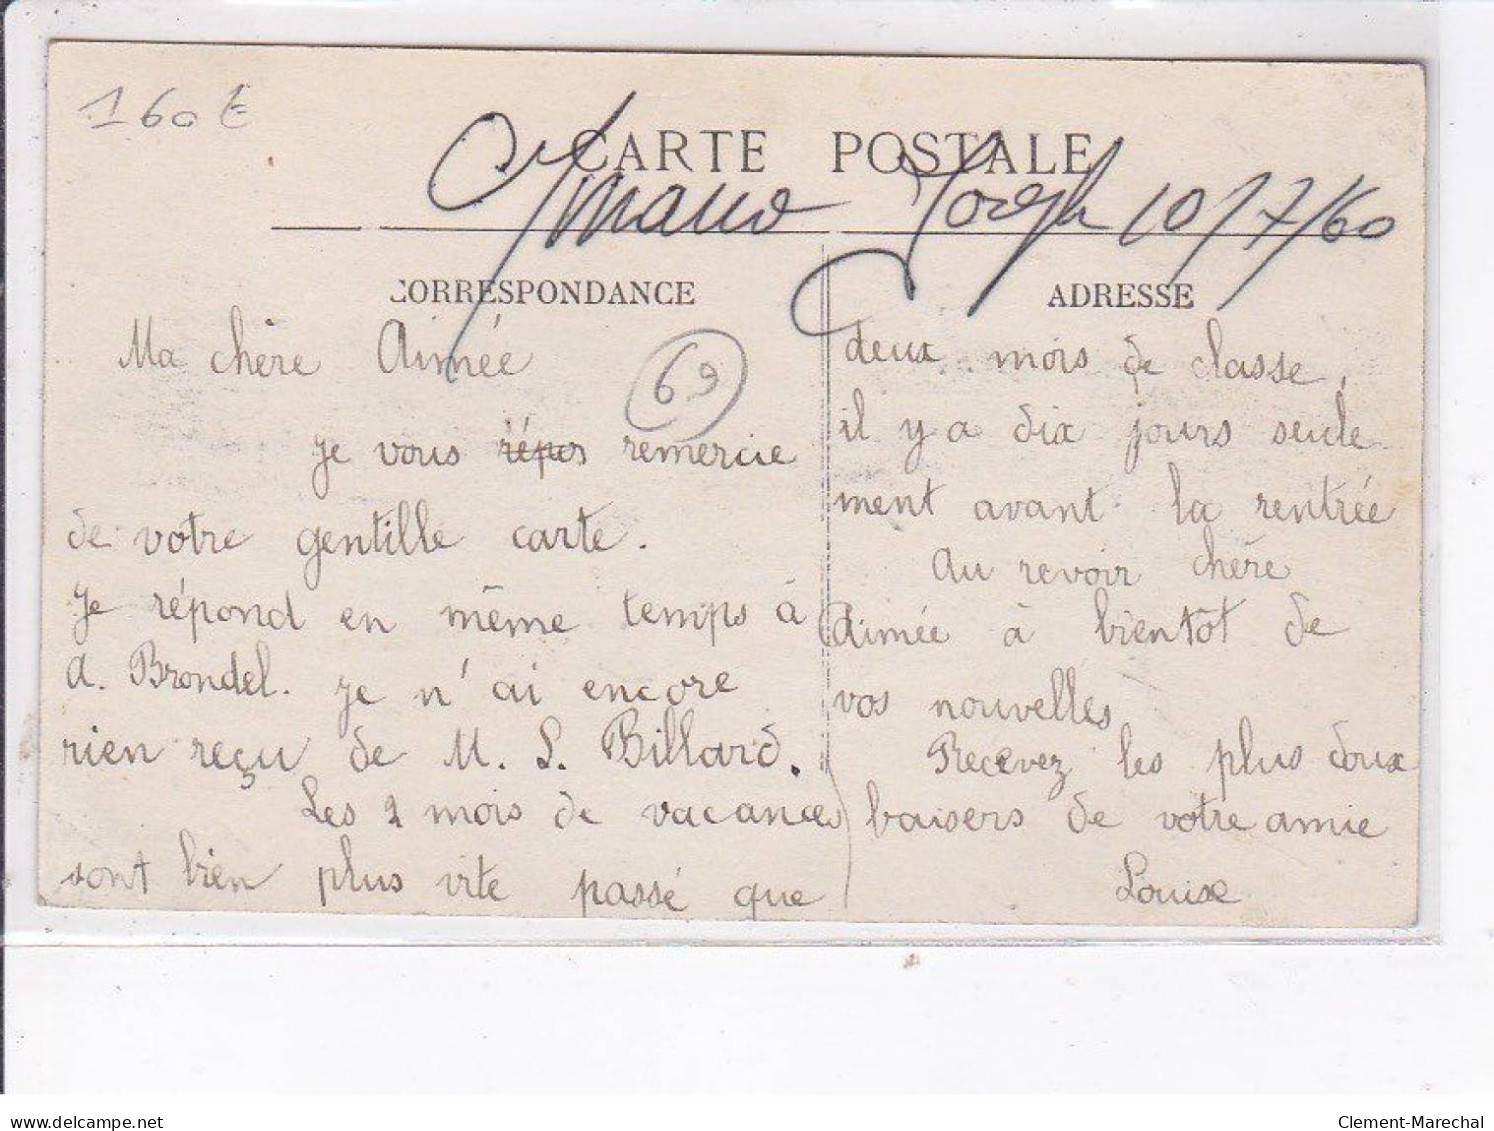 160€
CARTE POSTALE
Joseph 10/7/60
CORRESPONDANCE
ADRESSE
69
Ma chère Aimée
je vous répos remercie
de votre gentille carte.
Je répond en même temps à
A. Brondel. Je n'ai encore
rien reçu de M. L. Billard.
Les 2 mois de vacances
sont bien plus vite passé que
deux mois de classe,
il y a dix jours seule
ment avant la rentrée
Au revoir chère
Aimée à bientôt de
vos nouvelles
Recevez les plus doux
baisers de votre amie
Louise
delcampe.net
Clement-Marechal